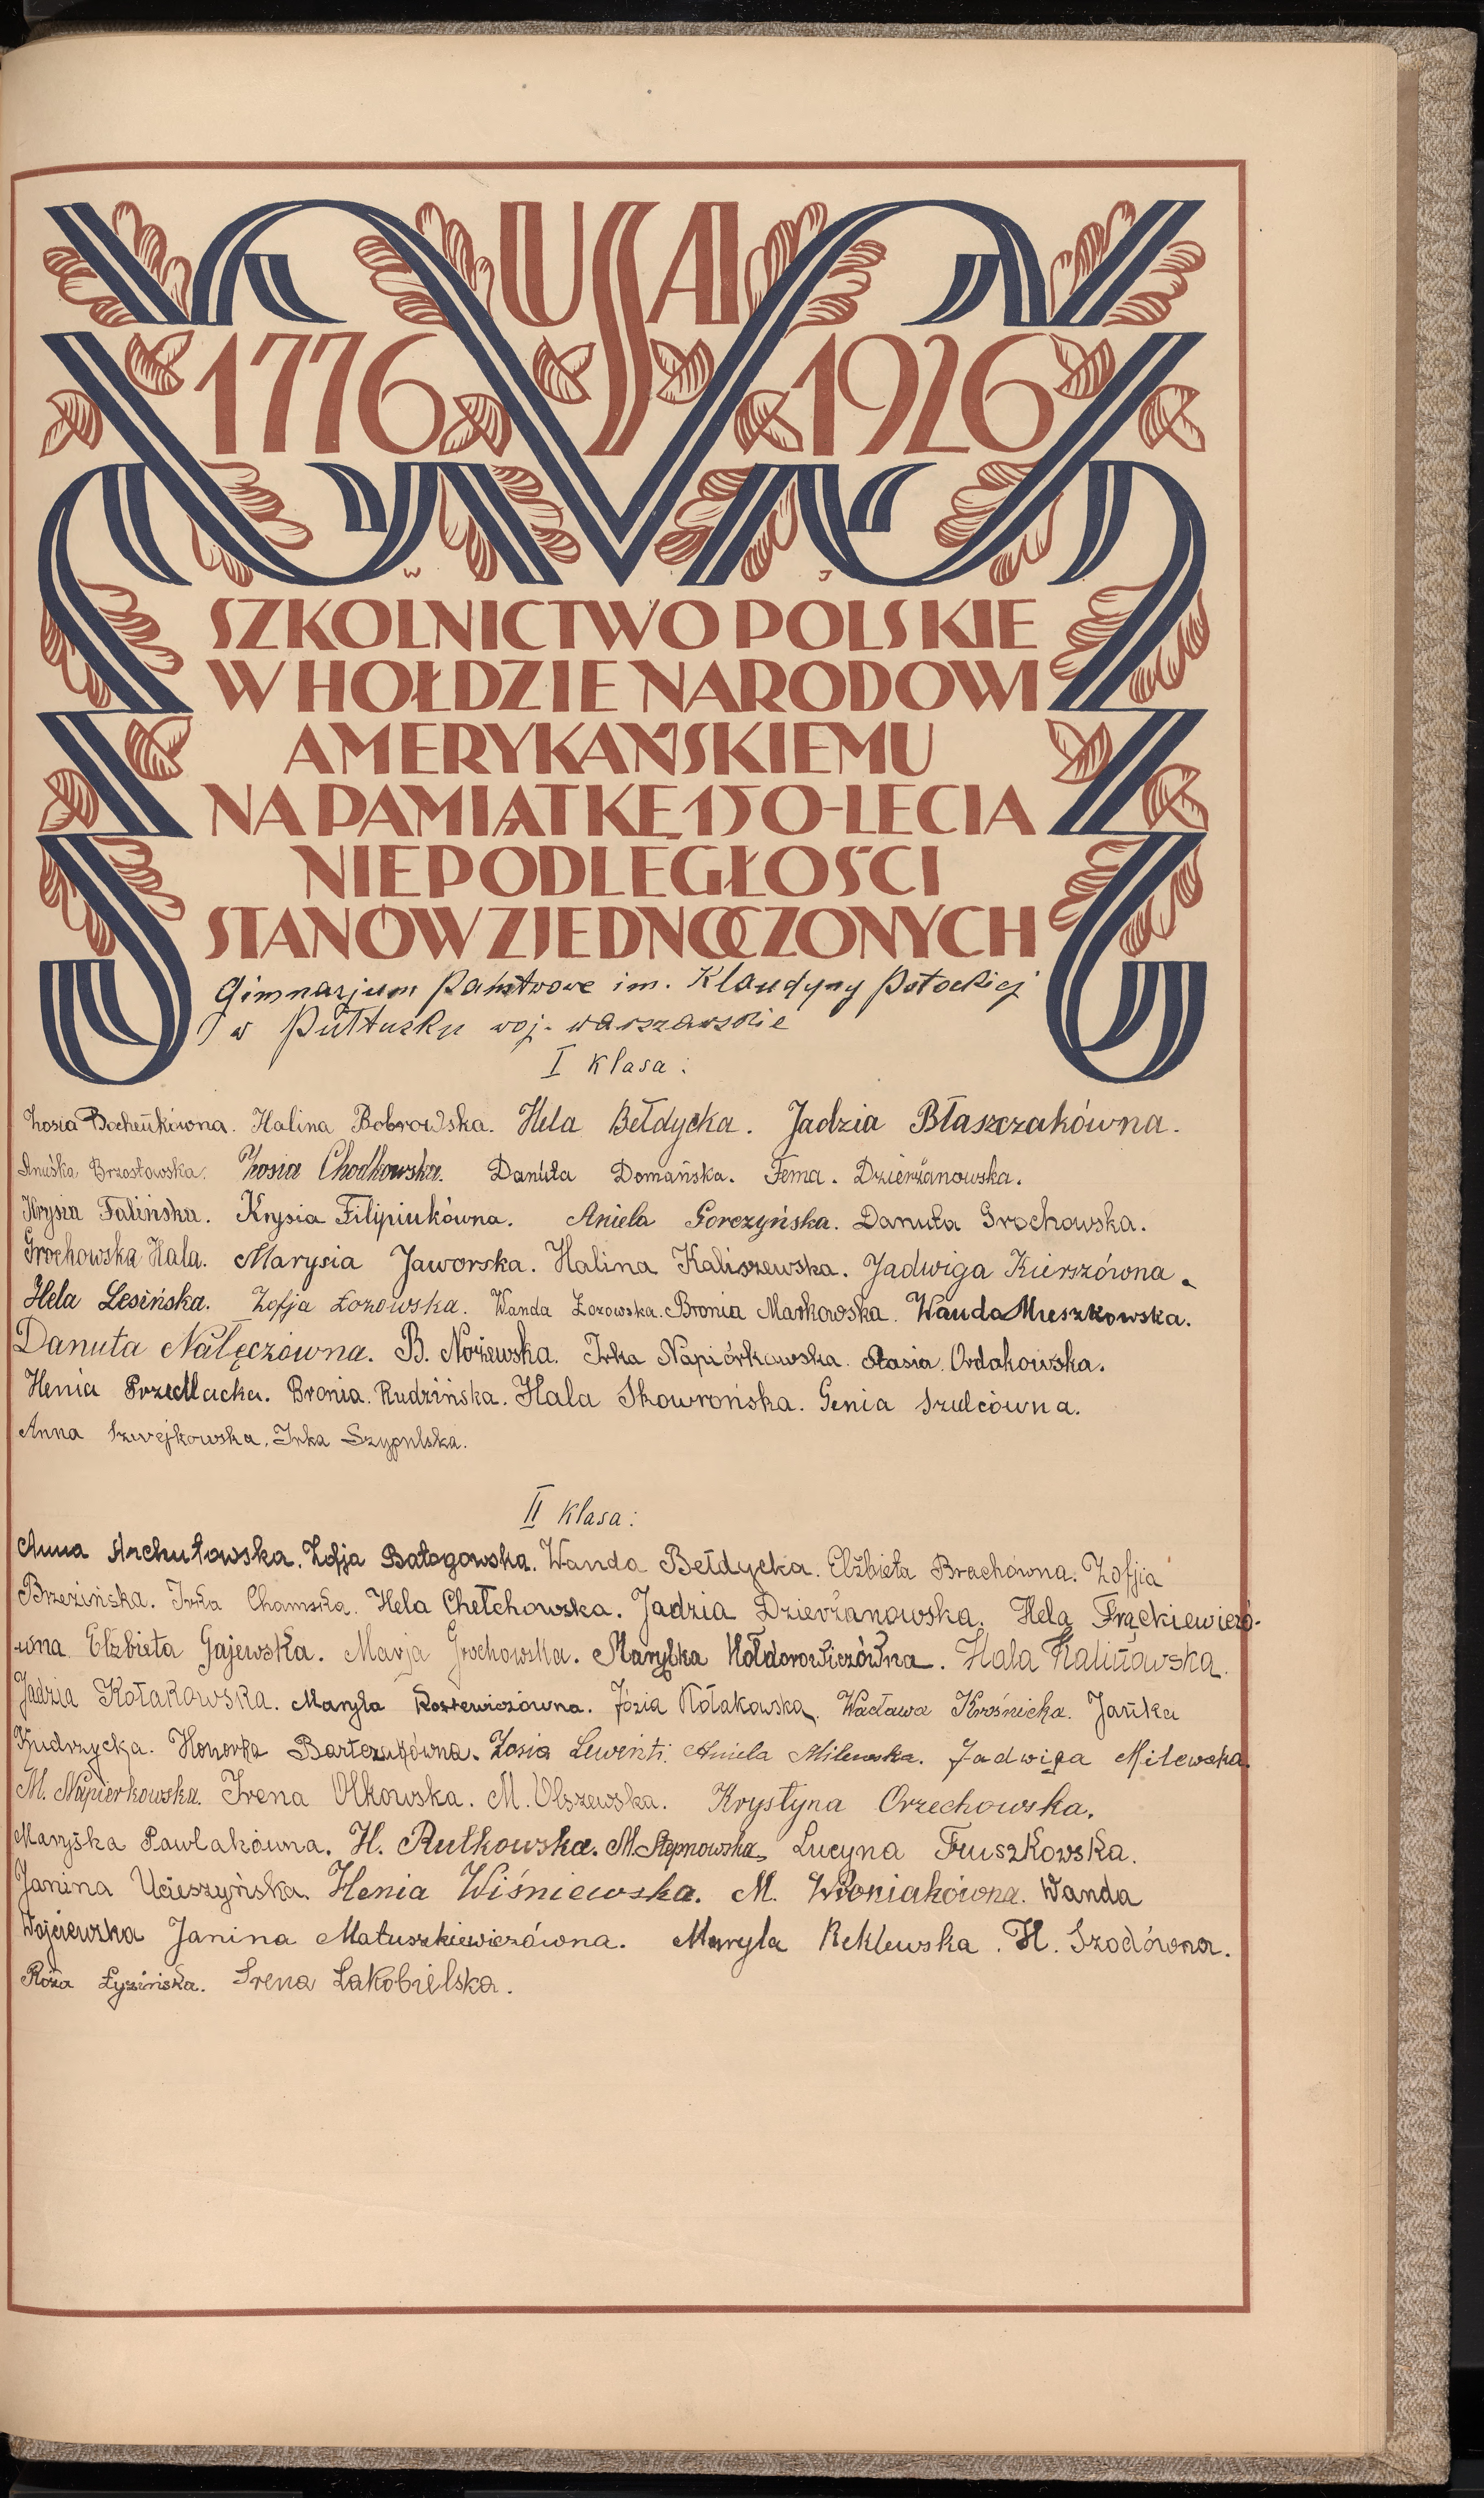 USA
1776 1926
W J
SZKOLNICTWO POLSKIE
W HOŁDZIE NARODOWI
AMERYKAŃSKIEMU
NA PAMIĄTKĘ 150-LECIA
NIEPODLEGŁOŚCI
STANÓW ZJEDNOCZONYCH
Gimnazjum Państwowe im. Klaudyny Potockiej
w Pułtusku woj. warszawskie
I klasa:
Zosia Bocheńkówna. Halina Bobrowska. Hela Bełdycka. Jadzia Błaszczakówna.
Anuśka Brzostowska. Zosia Chodkowska. Danuta Domańska. Fema. Dzierżanowska.
Krysia Falińska. Krysia Filipiukówna. Aniela Gorczyńska. Danuta Grochowska.
Grochowska Hala. Marysia Jaworska. Halina Kaliszewska. Jadwiga Kierszówna.
Hela Lesińska. Zofja Łozowska. Wanda Łozowska. Bronia Markowska. Wanda Muszkowska.
Danuta Nałęczówna. B. Nożewska. Irka Napiórkowska. Stasia Ordakowska.
Henia Przedlacka. Bronia Rudzińska. Hala Skowrońska. Genia Szulcówna.
Anna Szwejkowska. Irka Szypulska.
II klasa:
Anna Archutowska. Zofja Batogowska. Wanda Bełdycka. Elżbieta Brachówna. Zofjia
Brzezińska. Irka Chamska. Hela Chełchowska. Jadzia Dzierżanowska. Hela Frąckiewiczó-
wna Elżbieta Gajewska. Marja Grochowska. Marylka Hołdorowiczówna. Hala Kalinowska.
Jadzia Kołakowska. Maryla Kostewiczówna. Józia Kołakowska. Wacława Krośnicka. Jańka
Kudrzycka. Honorka Bartczakówna. Zosia Lewinti. Aniela Milewska. Jadwiga Milewska.
M. Napierkowska. Irena Olkowska. M. Olszewska. Krystyna Orzechowska.
Maryśka Pawlakówna. H. Rutkowska. M. Stepnowska. Lucyna Truszkowska.
Janina Ucieszyńska. Henia Wiśniewska. M. Woźniakówna. Wanda
Wojciewska Janina Matuszkiewiczówna. Maryla Reklewska. H. Szodówna.
Róża Łyzińska. Irena Łakobielska.